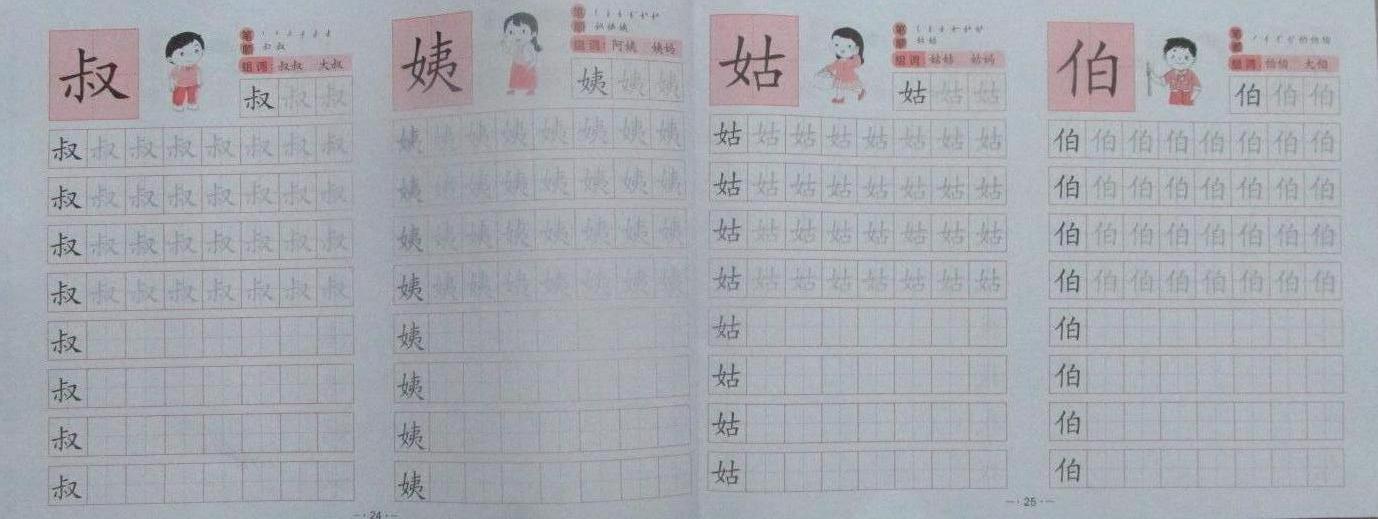 叔
笔顺
叔
组词 叔叔 大叔
叔 叔 叔
叔 叔 叔 叔 叔 叔 叔 叔
叔 叔 叔 叔 叔 叔 叔 叔
叔 叔 叔 叔 叔 叔 叔 叔
叔 叔 叔 叔 叔 叔 叔 叔
叔
叔
叔
叔
姨
笔顺
组词 阿姨 姨妈
姨 姨 姨
姨 姨 姨 姨 姨 姨 姨 姨
姨 姨 姨 姨 姨 姨 姨 姨
姨 姨 姨 姨 姨 姨 姨 姨
姨 姨 姨 姨 姨 姨 姨 姨
姨
姨
姨
姨
·24·
姑
笔顺
组词 姑姑 姑妈
姑 姑 姑
姑 姑 姑 姑 姑 姑 姑 姑
姑 姑 姑 姑 姑 姑 姑 姑
姑 姑 姑 姑 姑 姑 姑 姑
姑 姑 姑 姑 姑 姑 姑 姑
姑
姑
姑
姑
伯
笔顺
组词 伯伯 大伯
伯 伯 伯
伯 伯 伯 伯 伯 伯 伯 伯
伯 伯 伯 伯 伯 伯 伯 伯
伯 伯 伯 伯 伯 伯 伯 伯
伯 伯 伯 伯 伯 伯 伯 伯
伯
伯
伯
伯
·25·